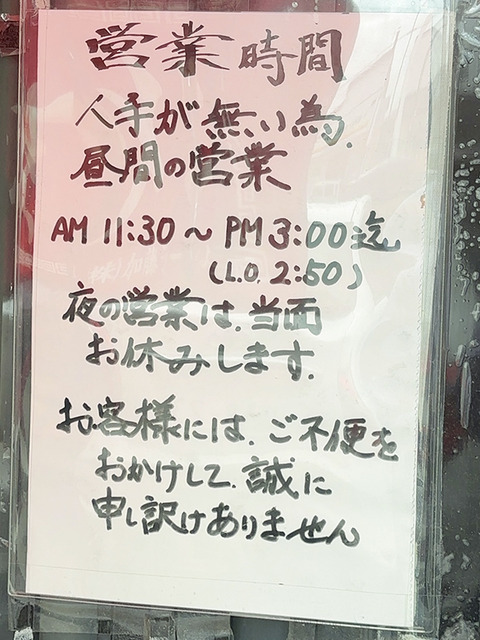 営業時間
人手が無い為、
昼間の営業
AM 11:30 〜 PM 3:00迄
(L.O. 2:50)
夜の営業は、当面
お休みします。
お客様には、ご不便を
おかけして、誠に
申し訳けありません